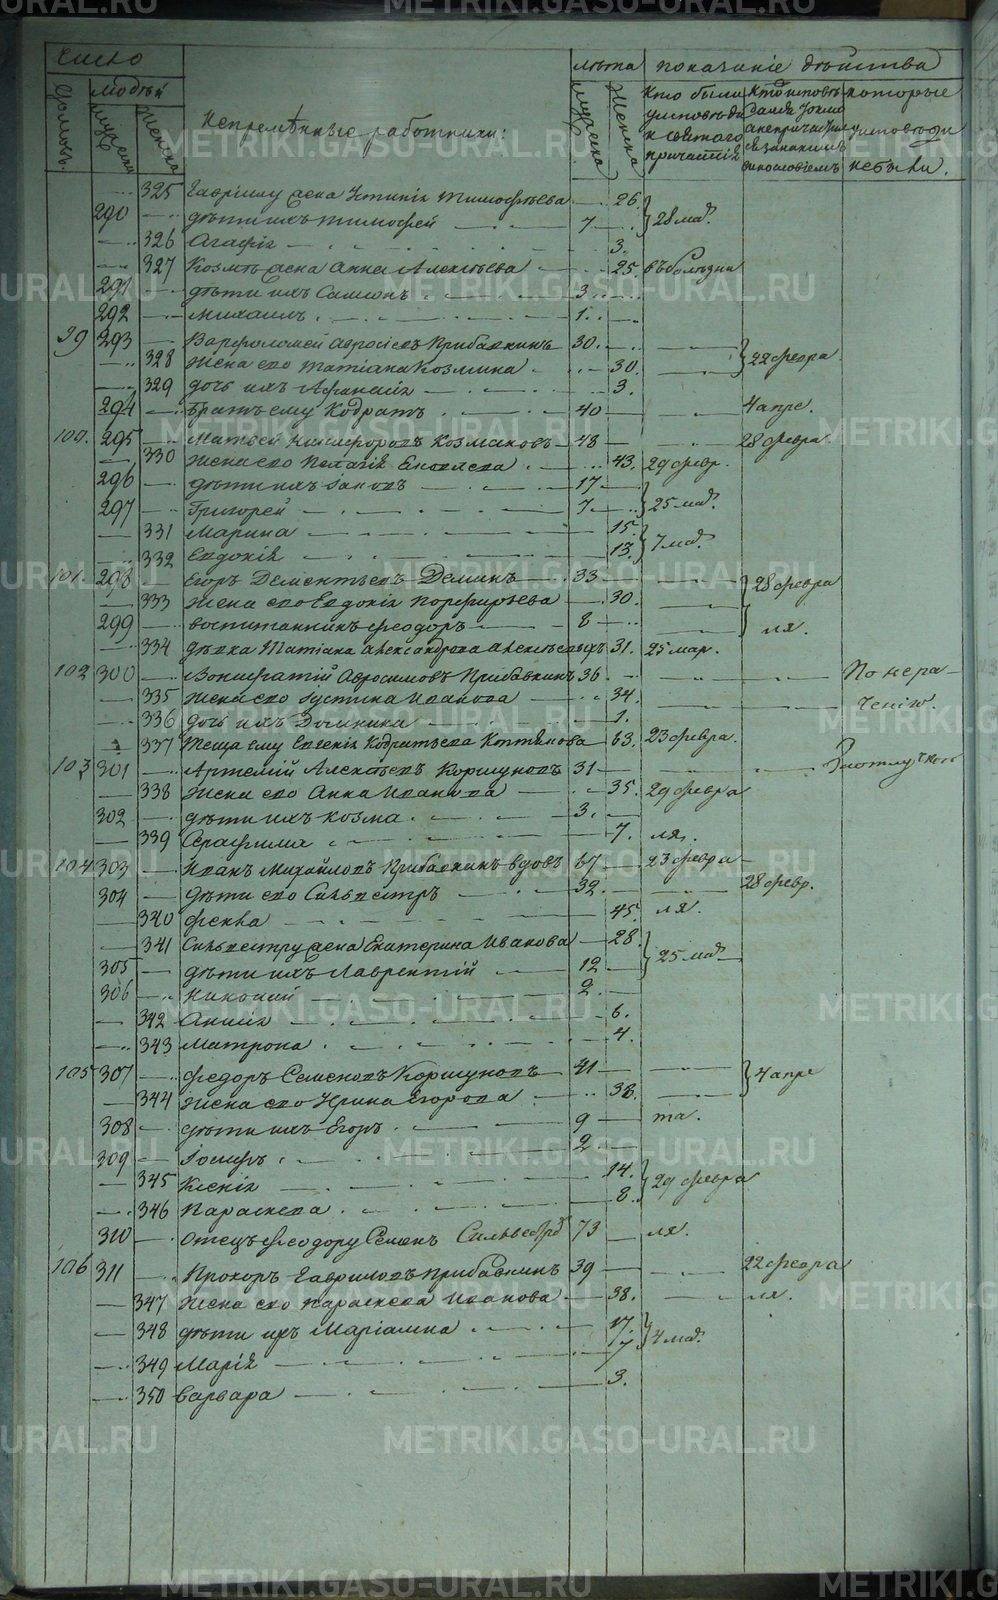 число лѣта показаніе дѣйства
домовъ людей мужска женска
Непремѣнные работники:
мужска женска
Кто были у исповѣди и святого причастія
которые у исповѣди не были.
325 Гаврилу жена Устинія Тимофѣева 26.
290 дѣти ихъ Тимофей 7 28 мар.
326 Агафія 3.
327 Козмѣ жена Анна Алексѣева 25. въ болѣзни
291 дѣти ихъ Симеонъ 3
292 Михаилъ 1.
99 293 Варфоломей Аѳросіевъ Прибавкинъ 30.
328 Жена его Татіана Козмина 30. 22 февра
329 дочь ихъ Афанасія 3.
294 Братъ ему Кодратъ 40 4 апре.
100. 295 Матвей Никифоровъ Козмаковъ 48 28 февра.
330 Жена его Пелагія Еновлева 43. 29 февр.
296 дѣти ихъ Іаковъ 17
297 Григорей 7 25 мар.
331 Марина 15.
332 Евдокія 13. 7 мар.
101. 298 Егоръ Дементьевъ Деминъ 33
333 Жена его Евдокія Порфирьева 30. 28 февра
299 воспитанникъ Феодоръ 8 ля.
334 дѣвка Татіана Александрова 31. 25 мар.
102 300 Вонифатій Авросимовъ Прибавкинъ 36 По нера-
335 Жена его Іустина Иванова 34. ченію.
336 дочь ихъ Домника 1.
337 Теща ему Евгенія Кодратьева 63. 23 февра.
103 301 Артемій Алексѣевъ Коршуновъ 31 За отлучкою
338 Жена его Анна Иванова 35. 29 февра
302 дѣти ихъ Козма. 3.
339 Серафима 7. ля.
104 303 Иванъ Михайловъ Прибавкинъ вдовъ 67 23 февра
304 дѣти его Сильвестръ 32. 28 февр.
340 Фекла 45. ля.
341 Сильвестру жена Екатерина Иванова 28.
305 дѣти ихъ Лаврентій 12 25 мар.
306 Николай 2.
342 Анисія 6.
343 Матрона. 4.
105 307 Федоръ Семеновъ Коршуновъ 41 4 апре
344 Жена его Ирина Егорова 38.
308 дѣти ихъ Егоръ. 9 та.
309 Іосифъ. 2
345 Ксенія 14. 29 февра
346 Параскева. 8.
310 Отецъ Феодору Семенъ Сильвестр 73 ля.
106 311 Прохоръ Гавриловъ Прибавкинъ 39 22 февра
347 Жена его Параскева Иванова 38. ля.
348 дѣти ихъ Маріамна 17 4 мар.
349 Марія 7
350 Варвара 3.
METRIKI.GASO-URAL.RU